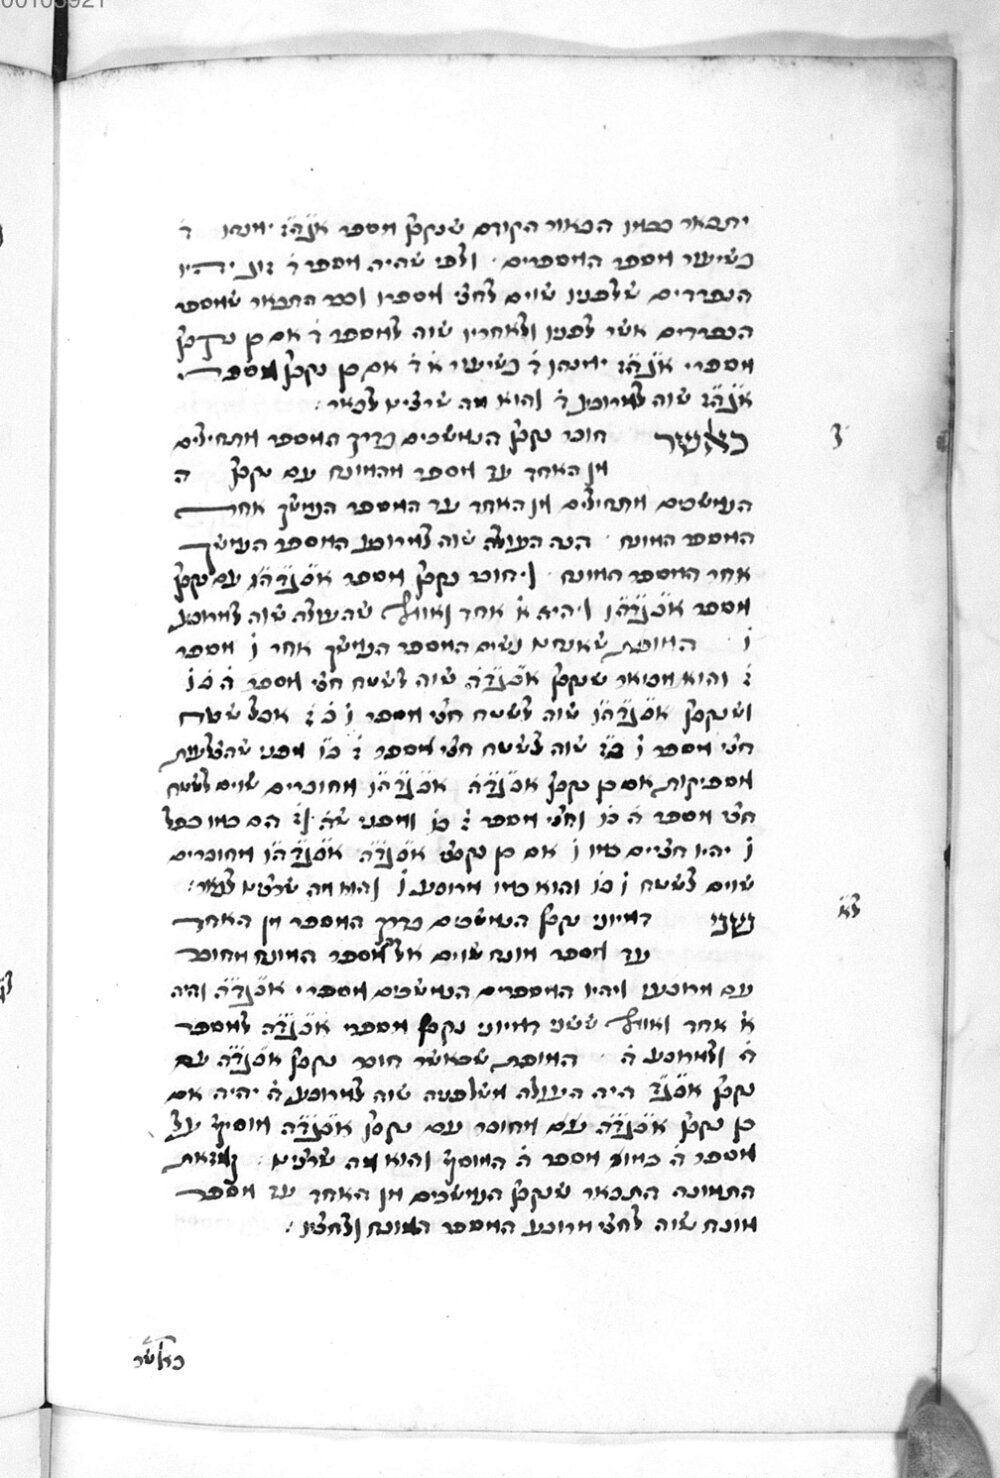 יתבאר כמו הבאור הקודם שנקבץ מספר אֹבֹגֹהֹזֹ ימנהו ד
כשיעור מספר המספרים ולפי שהיה מספר ד זוג יהיו
הנפרדים שלפניו שוים לחצי מספרו וכבר התבאר שמספר
הנפרדים אשר לפניו ולאחריו שוה למספר ד אם כן נקבץ
מספרי אֹגֹהֹזֹ ימנהו ד כשיעור א ד אם כן נקבץ מספרי
אֹגֹהֹזֹ שוה למרובע ד והוא מה שרצינו לבאר :
כאשר חובר נקבץ הנמשכים כדרך המספר מתחילים
מן האחד עד מספר מהמונח עם נקבץ ה
הנמשכים מתחילים מן האחד עד המספר הנמשך אחר
המספר המונח הנה העולה שוה למרובע המספר הנמשך
אחר המספר המונח ויחובר נקבץ מספר אֹבֹגֹדֹהֹ עם נקבץ
מספר אֹבֹגֹדֹהֹוֹ ויהיה א אחד ואומר שהעולה שוה למרובע
ו המופת שאנחנו נשים המספר הנמשך אחר ו מספר
ז והוא מבואר שנקבץ אֹבֹגֹדֹהֹ שוה לשטח חצי מספר ה בו
ושנקבץ אֹבֹגֹדֹהֹוֹ שוה לשטח חצי מספר ו בז אבל שטח
חצי מספר ו בז שוה לשטח חצי מספר ז בו מפני שהצלעות
מספיקות אם כן נקבץ אֹבֹגֹדֹהֹ אֹבֹגֹדֹהֹוֹ מחוברים שוים לשטח
חצי מספר ה בו וחצי מספר ז בו ומפני שה וז הם כמו כפל
ו יהיו חציים כמו ו אם כן נקבצי אֹבֹגֹדֹהֹ אֹבֹגֹדֹהֹוֹ מחוברים
שוים לשטח ו בו והוא כמו מרובע ו והוא מה שרצינו לבאר :
שני דמיוני נקבץ הנמשכים כדרך המספר מן האחד
עד מספר מונח שוים אל מספר המונח מחובר
עם מרובעו ויהיו המספרים הנמשכים מספרי אֹבֹגֹדֹהֹ והיה
א אחד ואומר ששני דמיוני נקבץ מספרי אֹבֹגֹדֹהֹ למספר
ה ולמרובע ה המופת שכאשר חובר נקבץ אֹבֹגֹדֹהֹ עם
נקבץ אֹבֹגֹדֹ היה העולה משלפניה שוה למרובע ה יהיה אם
כן נקבץ אֹבֹגֹדֹהֹ עם מחובר עם נקבץ אֹבֹגֹדֹהֹ מוסיף על
מספר ה כמות מספר ה המוסיף והוא מה שרצינו ומזאת
התמונה התבאר שנקבץ הנמשכים מן האחד עד מספר
מונח שוה לחצי מרובע המספר המונח ולחציו :
כאשר